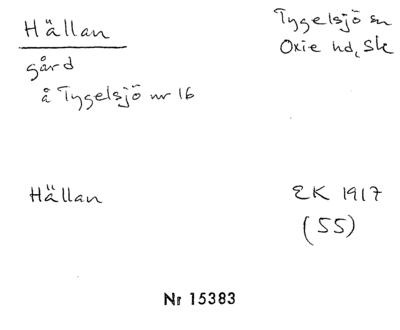 Hällan
Tygelsjö sn
Oxie hd, Sk
gård
å Tygelsjö nr 16
Hällan
EK 1917
(55)
Nr 15383